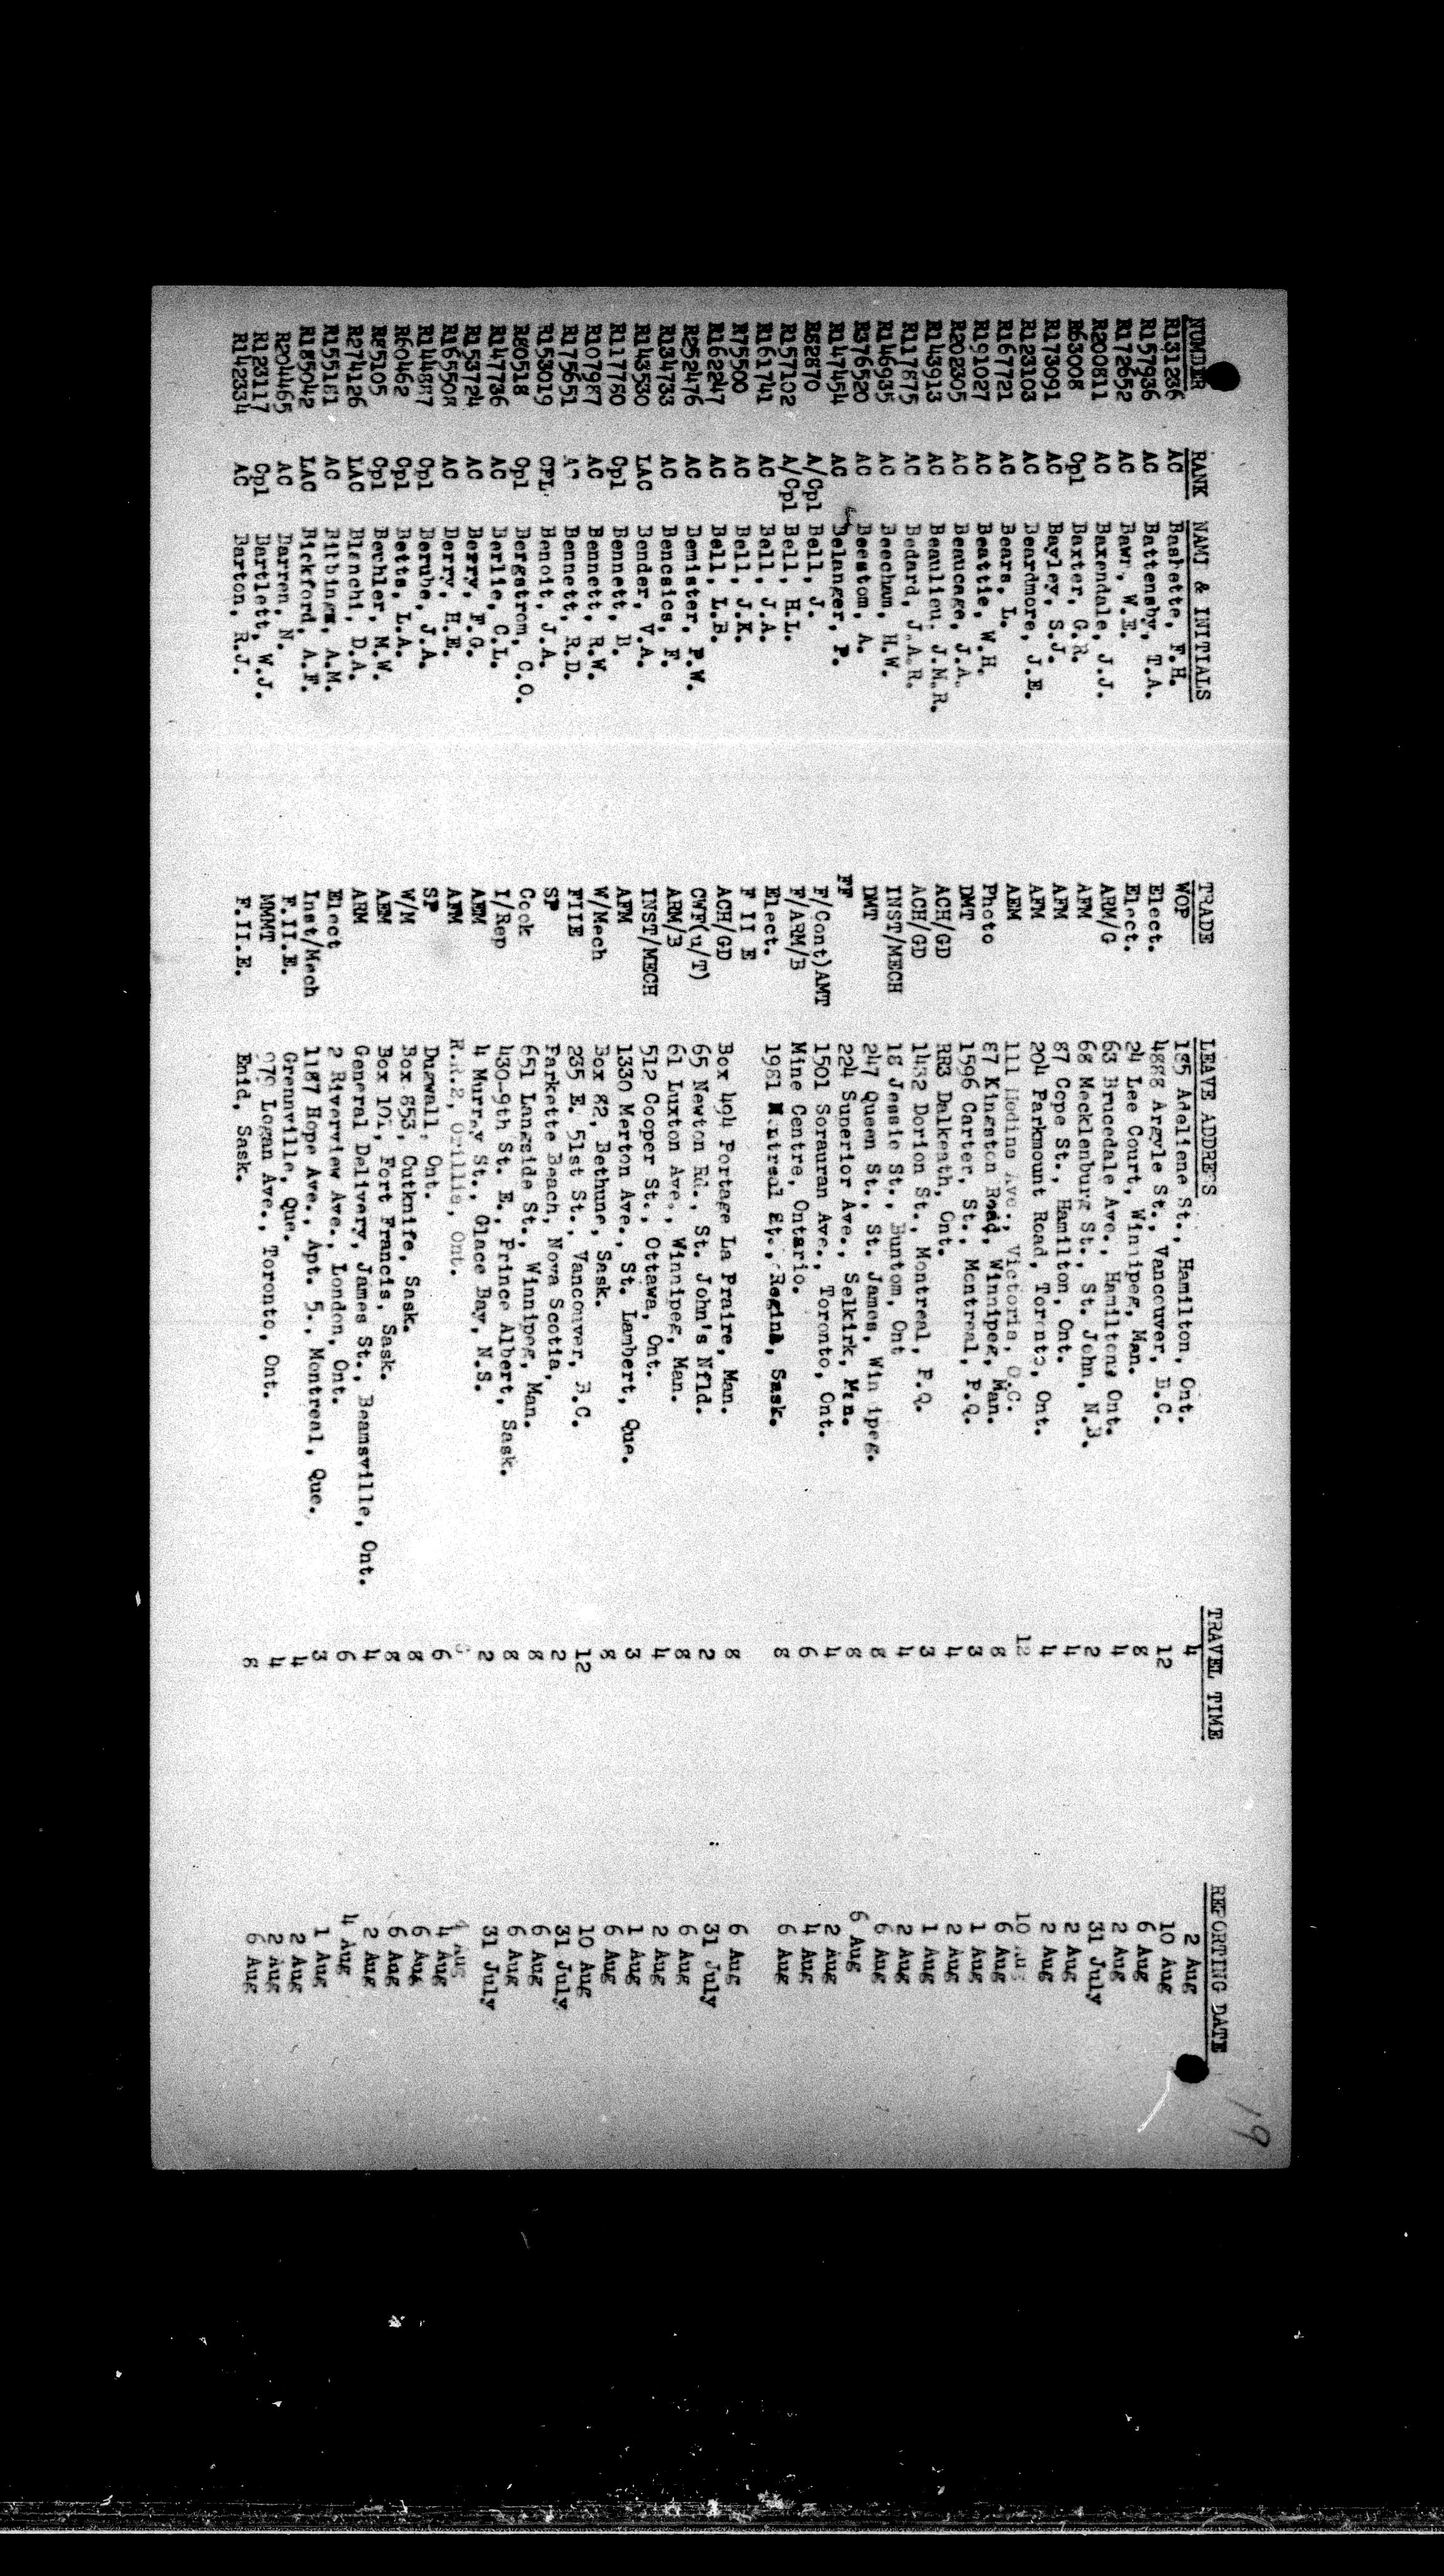 19
NUMBER RANK NAME & INITIALS TRADE LEAVE ADDRESS TRAVEL TIME REPORTING DATE
R131236 AC Bashette, F.H. WOP 185 Adeliene St., Hamilton, Ont. 4 2 Aug
R157936 AC Battensby, T.A. Elect. 4888 Argyle St., Vancouver, B.C. 12 10 Aug
R172652 AC Bawr, W.E. Elect. 24 Lee Court, Winnipeg, Man. 8 6 Aug
R200811 AC Baxendale, J.J. ARM/G 63 Brucedale Ave., Hamilton, Ont. 4 2 Aug
R63008 Cpl Baxter, G.R. AFM 68 Mecklenburg St., St. John, N.B. 2 31 July
R173091 AC Bayley, S.J. AFM 87 Cope St., Hamilton, Ont. 4 2 Aug
R123103 AC Beardmore, J.E. AFM 204 Parkmount Road, Toronto, Ont. 4 2 Aug
R167721 AC Bears, L. AEM 111 Medina Ave., Victoria, B.C. 12 10 Aug
R191027 AC Beattie, W.H. Photo 87 Kingston Road, Winnipeg, Man. 8 6 Aug
R202305 AC Beaucage, J.A. DMT 1596 Carter, St., Montreal, P.Q. 3 1 Aug
R143913 AC Beaulieu, J.M.R. ACH/GD RR3 Dalkeath, Ont. 4 2 Aug
R117675 AC Bedard, J.A.R. ACH/GD 1432 Dorion St., Montreal, P.Q. 3 1 Aug
R146935 AC Beechan, H.W. INST/MECH 18 Jessie St., Buntom, Ont 4 2 Aug
R376520 AC Beestom, A. DMT 247 Queen St., St. James, Win ipeg. 8 6 Aug
R147454 AC Belanger, P. FF 224 Superior Ave., Selkirk, Man. 8 6 Aug
R82870 A/Cpl Bell, J. F/Cont)AMT 1501 Sorauran Ave., Toronto, Ont. 4 2 Aug
R157102 A/Cpl Bell, H.L. F/ARM/B Mine Centre, Ontario. 6 4 Aug
R161741 AC Bell, J.A. Elect. 1981 Montreal St., Regina, Sask. 8 6 Aug
R75500 AC Bell, J.K. F II E
R162247 AC Bell, L.B. ACH/GD Box 494 Portage La Praire, Man. 8 6 Aug
R252476 AC Bemister, P.W. CWF(u/T) 65 Newton Rd., St. John's Nfld. 2 31 July
R134733 AC Bencsics, F. ARM/B 61 Luxton Ave., Winnipeg, Man. 8 6 Aug
R143530 LAC Bender, V.A. INST/MECH 512 Cooper St., Ottawa, Ont. 4 2 Aug
R117760 Cpl Bennett, B. AFM 1330 Merton Ave., St. Lambert, Que. 3 1 Aug
R107987 AC Bennett, R.W. W/Mech Box 82, Bethune, Sask. 8 6 Aug
R175651 Bennett, R.D. FIIE 235 E. 51st St., Vancouver, B.C. 12 10 Aug
R153019 CPL Benoit, J.A. SP Parkette Beach, Nova Scotia, 2 31 July
R80518 Cpl Bergstrom, C.O. Cook 651 Langside St., Winnipeg, Man. 8 6 Aug
R147736 AC Berlie, C.L. I/Rep 430-9th St. E., Prince Albert, Sask. 8 6 Aug
R153724 AC Berry, F.G. AEM 4 Murray St., Glace Bay, N.S. 2 31 July
R165508 AC Berry, H.E. AFM R.R.2, Orillia, Ont. Aug
R144887 Cpl Berube, J.A. SP Dugwall, Ont. 6 4 Aug
R60462 Cpl Betts, L.A. W/M Box 853, Cutknife, Sask. 8 6 Aug
R85105 Cpl Beuhler, M.W. AEM Box Fort Francis, Sask. 8 6 Aug
R274126 LAC Bianchi, D.A. ARM General Delivery, James St., Beamsville, Ont. 4 2 Aug
R155181 AC Bilbings, A.M. Elect 2 Riverview Ave., London, Ont. 6 4 Aug
R185042 LAC Bickford, A.F. Inst/Mech 1187 Hope Ave., Apt. 5., Montreal, Que. 3 1 Aug
R204465 AC Barren, N. F.II.E. Grennville, Que. 4 2 Aug
R123117 Cpl Bartlett, W.J. MMMT 979 Logan Ave., Toronto, Ont. 4 2 Aug
R142334 AC Barton, R.J. F.II.E. Enid, Sask. 8 6 Aug